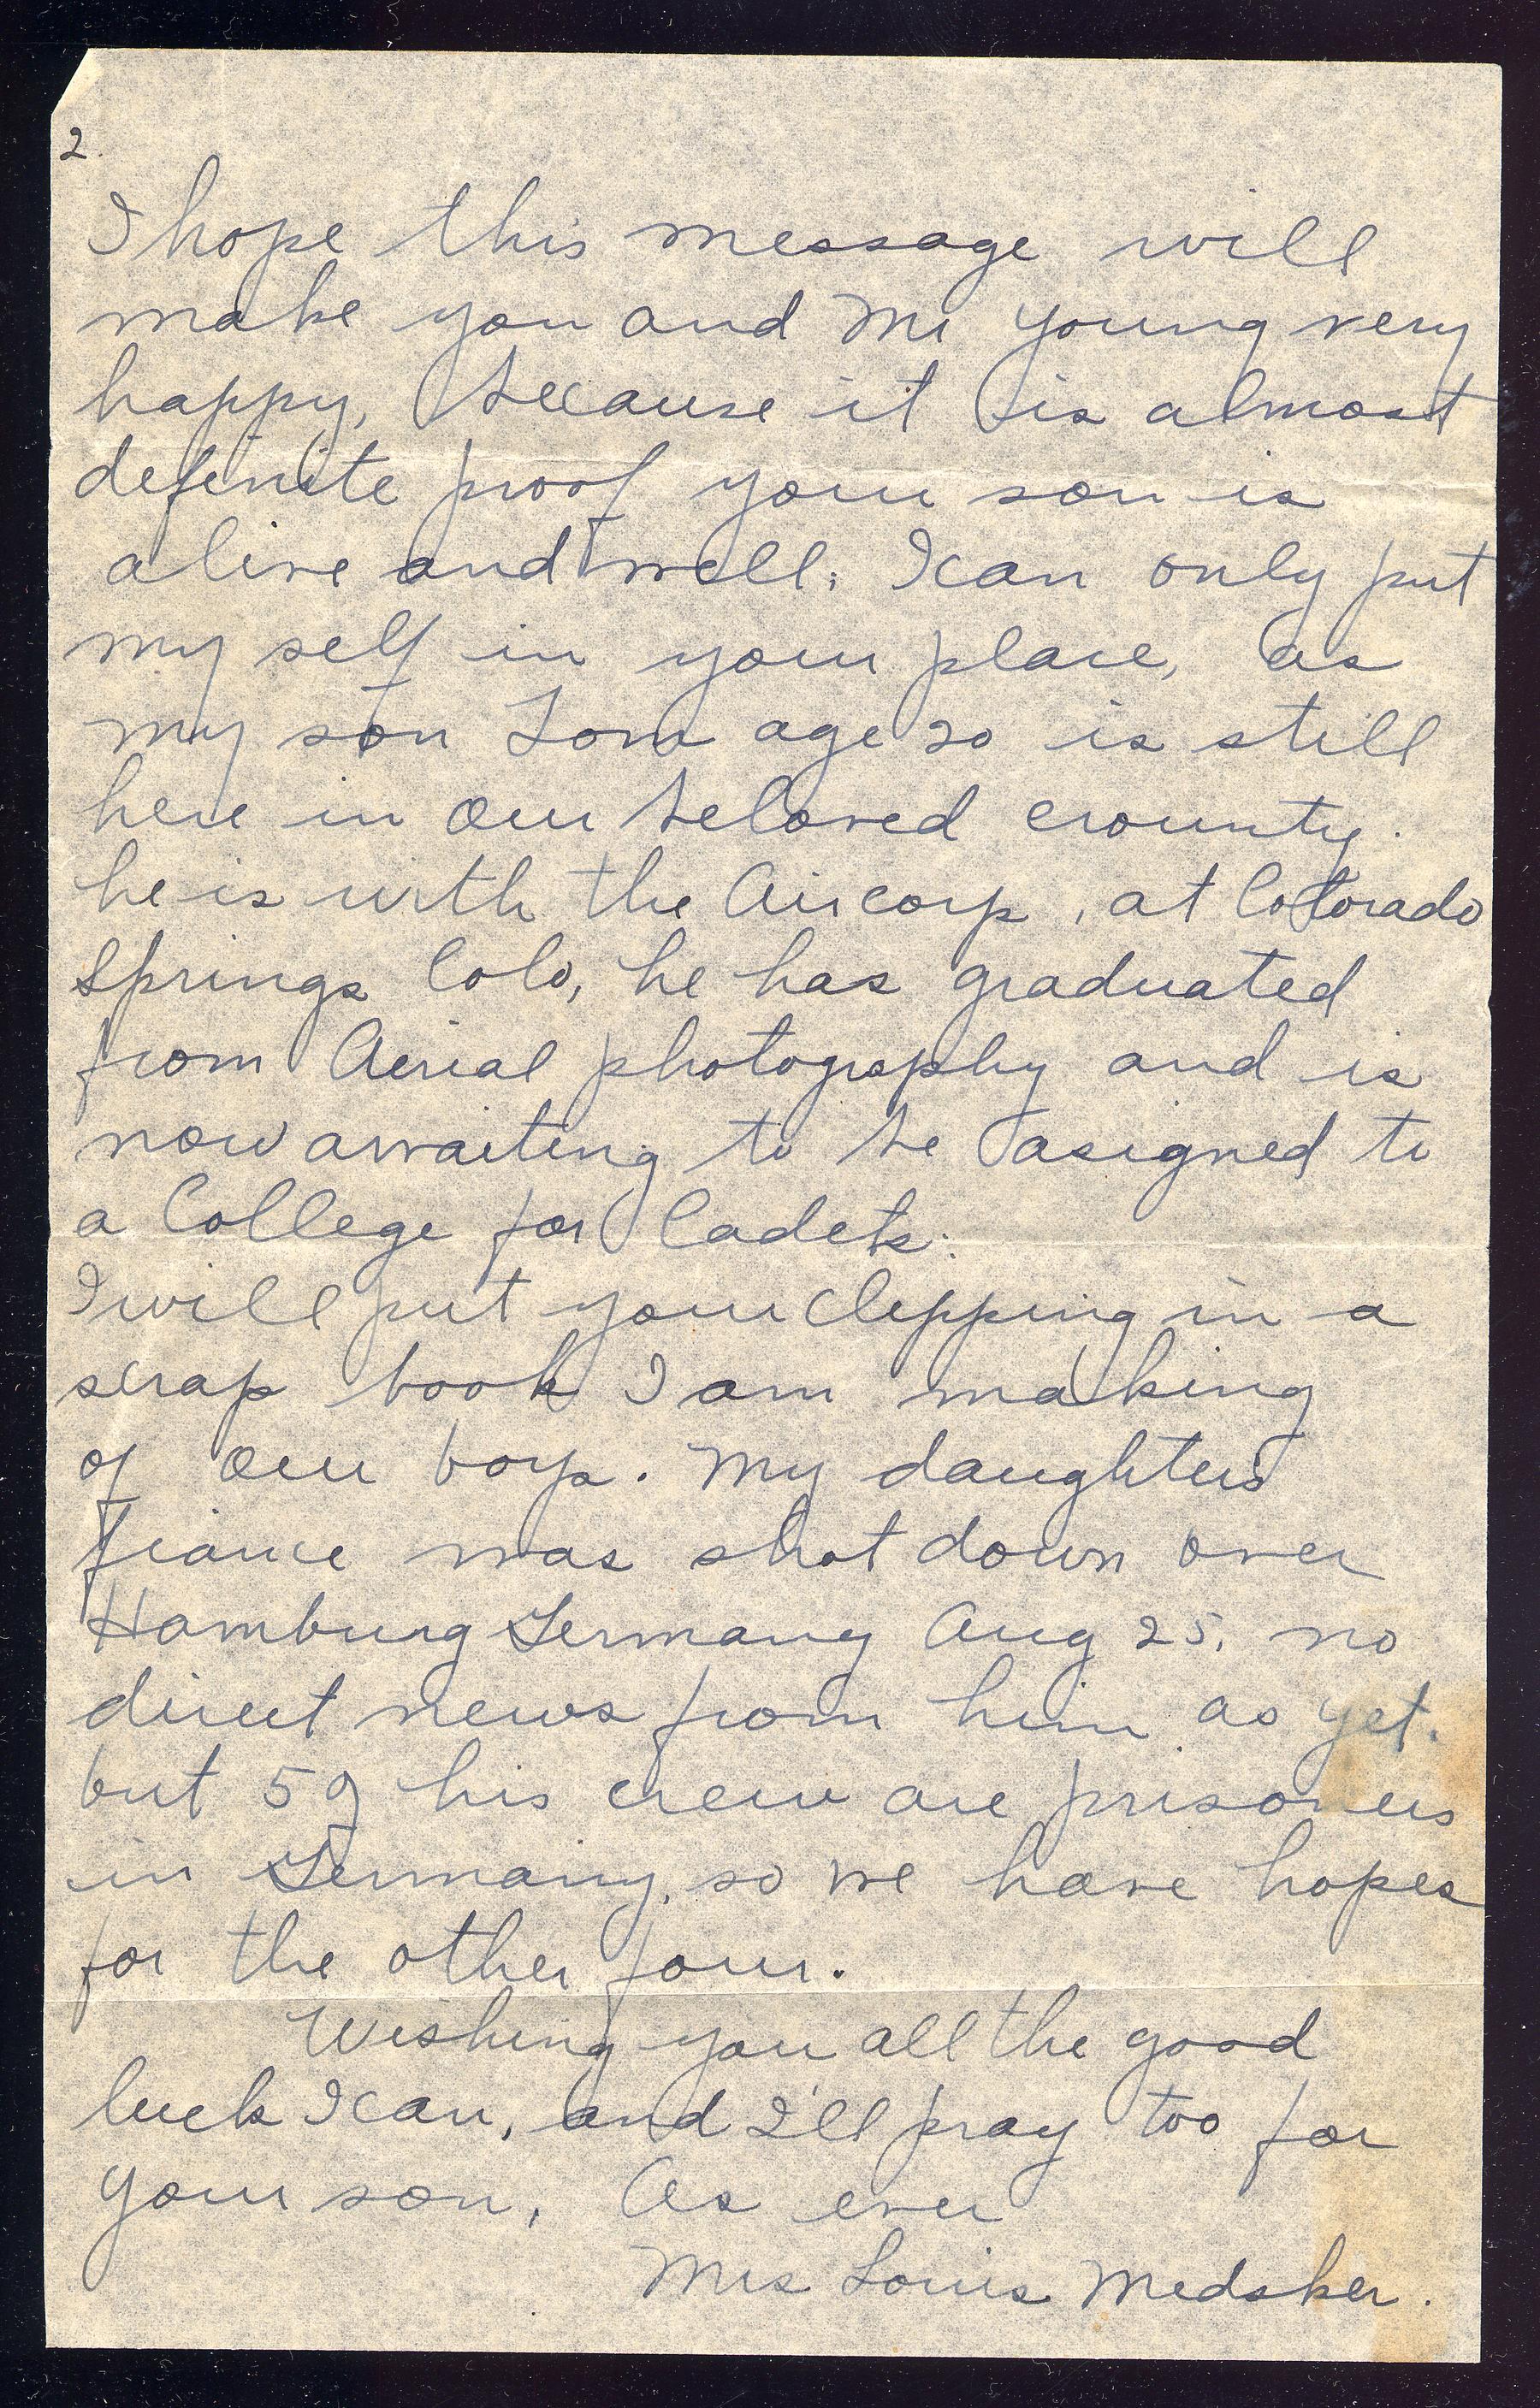 2.
I hope this message will
make you and Mr Young very
happy, because it is almost
definite proof your son is
alive and well; I can only put
my self in your place, as
my son Tom age 20 is still
here in our beloved crounty.
he is with the Air corp, at Colorado
Springs Colo, he has graduated
from Aerial photography and is
now awaiting to be asigned to
a College for Cadets.
I will put your clipping in a
scrap book I am making
of our boys. My daughters
fiance was shot down over
Hamburg Germany Aug 25, no
direct news from him as yet.
but 5 of his crew are prisoners
in Germany, so we have hopes
for the other four.
Wishing you all the good
luck I can, and I'll pray too for
your son, As ever
Mrs Louis Medsker.